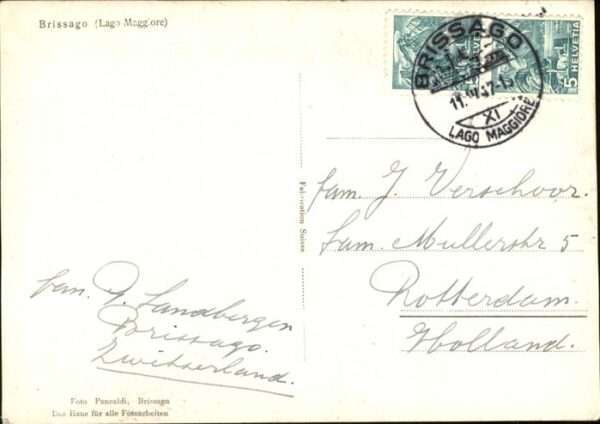 Brissago (Lago Maggiore)
BRISSAGO
11. VI 47-15
XI
LAGO MAGGIORE
5 HELVETIA
Fabrication Suisse
fam. J. Verschoor.
Sam. Mullerstr 5
Rotterdam.
Holland.
fam. Landbergen
Brissago.
Zwitserland.
Foto Pancaldi, Brissago
Das Haus für alle Fotoarbeiten